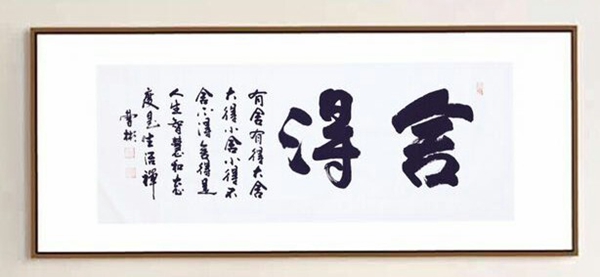 舍得
有舍有得大舍
大得小舍小得不
舍不得舍得是
人生智慧和态
度是生活禅